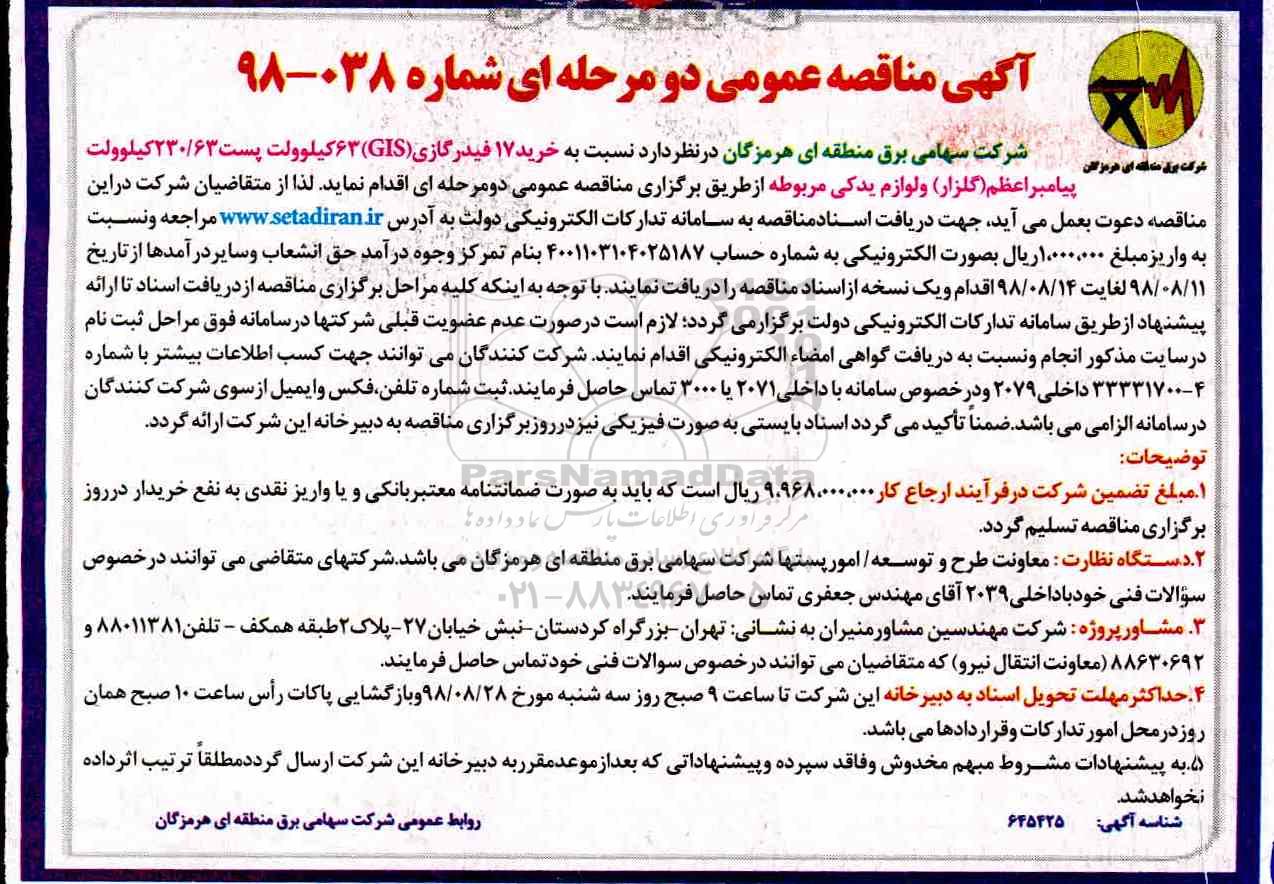 آگهی مناقصه عمومی دو مرحله ای شماره ۰۳۸-۹۸
شرکت برق منطقه ای هرمزگان
شرکت سهامی برق منطقه ای هرمزگان درنظردارد نسبت به خرید۱۷ فیدرگازی(GIS)۶۳کیلوولت پست۲۳۰/۶۳کیلوولت
پیامبراعظم(گلزار) ولوازم یدکی مربوطه ازطریق برگزاری مناقصه عمومی دومرحله ای اقدام نماید. لذا از متقاضیان شرکت دراین
مناقصه دعوت بعمل می آید، جهت دریافت اسنادمناقصه به سامانه تدارکات الکترونیکی دولت به آدرس www.setadiran.ir مراجعه ونسبت
به واریزمبلغ ۱،۰۰۰،۰۰۰ریال بصورت الکترونیکی به شماره حساب ۴۰۰۱۱۰۳۱۰۴۰۲۵۱۸۷ بنام تمرکز وجوه درآمد حق انشعاب وسایردرآمدها ازتاریخ
۹۸/۰۸/۱۱ لغایت ۹۸/۰۸/۱۴ اقدام ویک نسخه ازاسناد مناقصه را دریافت نمایند. با توجه به اینکه کلیه مراحل برگزاری مناقصه ازدریافت اسناد تا ارائه
پیشنهاد ازطریق سامانه تدارکات الکترونیکی دولت برگزارمی گردد؛ لازم است درصورت عدم عضویت قبلی شرکتها درسامانه فوق مراحل ثبت نام
درسایت مذکور انجام ونسبت به دریافت گواهی امضاء الکترونیکی اقدام نمایند. شرکت کنندگان می توانند جهت کسب اطلاعات بیشتر با شماره
۳۳۳۳۱۷۰۰-۴ داخلی۲۰۷۹ ودرخصوص سامانه با داخلی۲۰۷۱ یا ۳۰۰۰ تماس حاصل فرمایند.ثبت شماره تلفن،فکس وایمیل ازسوی شرکت کنندگان
درسامانه الزامی می باشد.ضمناً تأکید می گردد اسناد بایستی به صورت فیزیکی نیزدرروزبرگزاری مناقصه به دبیرخانه این شرکت ارائه گردد.
ParsNamadData
مرکز فرآوری اطلاعات پارس نماد داده ها
۰۲۱-۸۸۳۴۹۶۷۰-۵
توضیحات:
۱.مبلغ تضمین شرکت درفرآیند ارجاع کار۹،۹۶۸،۰۰۰،۰۰۰ ریال است که باید به صورت ضمانتنامه معتبربانکی و یا واریز نقدی به نفع خریدار درروز
برگزاری مناقصه تسلیم گردد.
۲.دستگاه نظارت : معاونت طرح و توسعه/ امورپستها شرکت سهامی برق منطقه ای هرمزگان می باشد.شرکتهای متقاضی می توانند درخصوص
سؤالات فنی خودباداخلی۲۰۳۹ آقای مهندس جعفری تماس حاصل فرمایند.
۳. مشاورپروژه : شرکت مهندسین مشاورمنیران به نشانی: تهران-بزرگراه کردستان-نبش خیابان۲۷-پلاک۲طبقه همکف - تلفن۸۸۰۱۱۳۸۱ و
۸۸۶۳۰۶۹۲ (معاونت انتقال نیرو) که متقاضیان می توانند درخصوص سوالات فنی خودتماس حاصل فرمایند.
۴.حداکثرمهلت تحویل اسناد به دبیرخانه این شرکت تا ساعت ۹ صبح روز سه شنبه مورخ ۹۸/۰۸/۲۸وبازگشایی پاکات رأس ساعت ۱۰ صبح همان
روزدرمحل امورتدارکات وقراردادها می باشد.
۵.به پیشنهادات مشروط مبهم مخدوش وفاقد سپرده وپیشنهاداتی که بعدازموعدمقرربه دبیرخانه این شرکت ارسال گرددمطلقاً ترتیب اثرداده
نخواهدشد.
شناسه آگهی: ۶۴۵۴۲۵
روابط عمومی شرکت سهامی برق منطقه ای هرمزگان